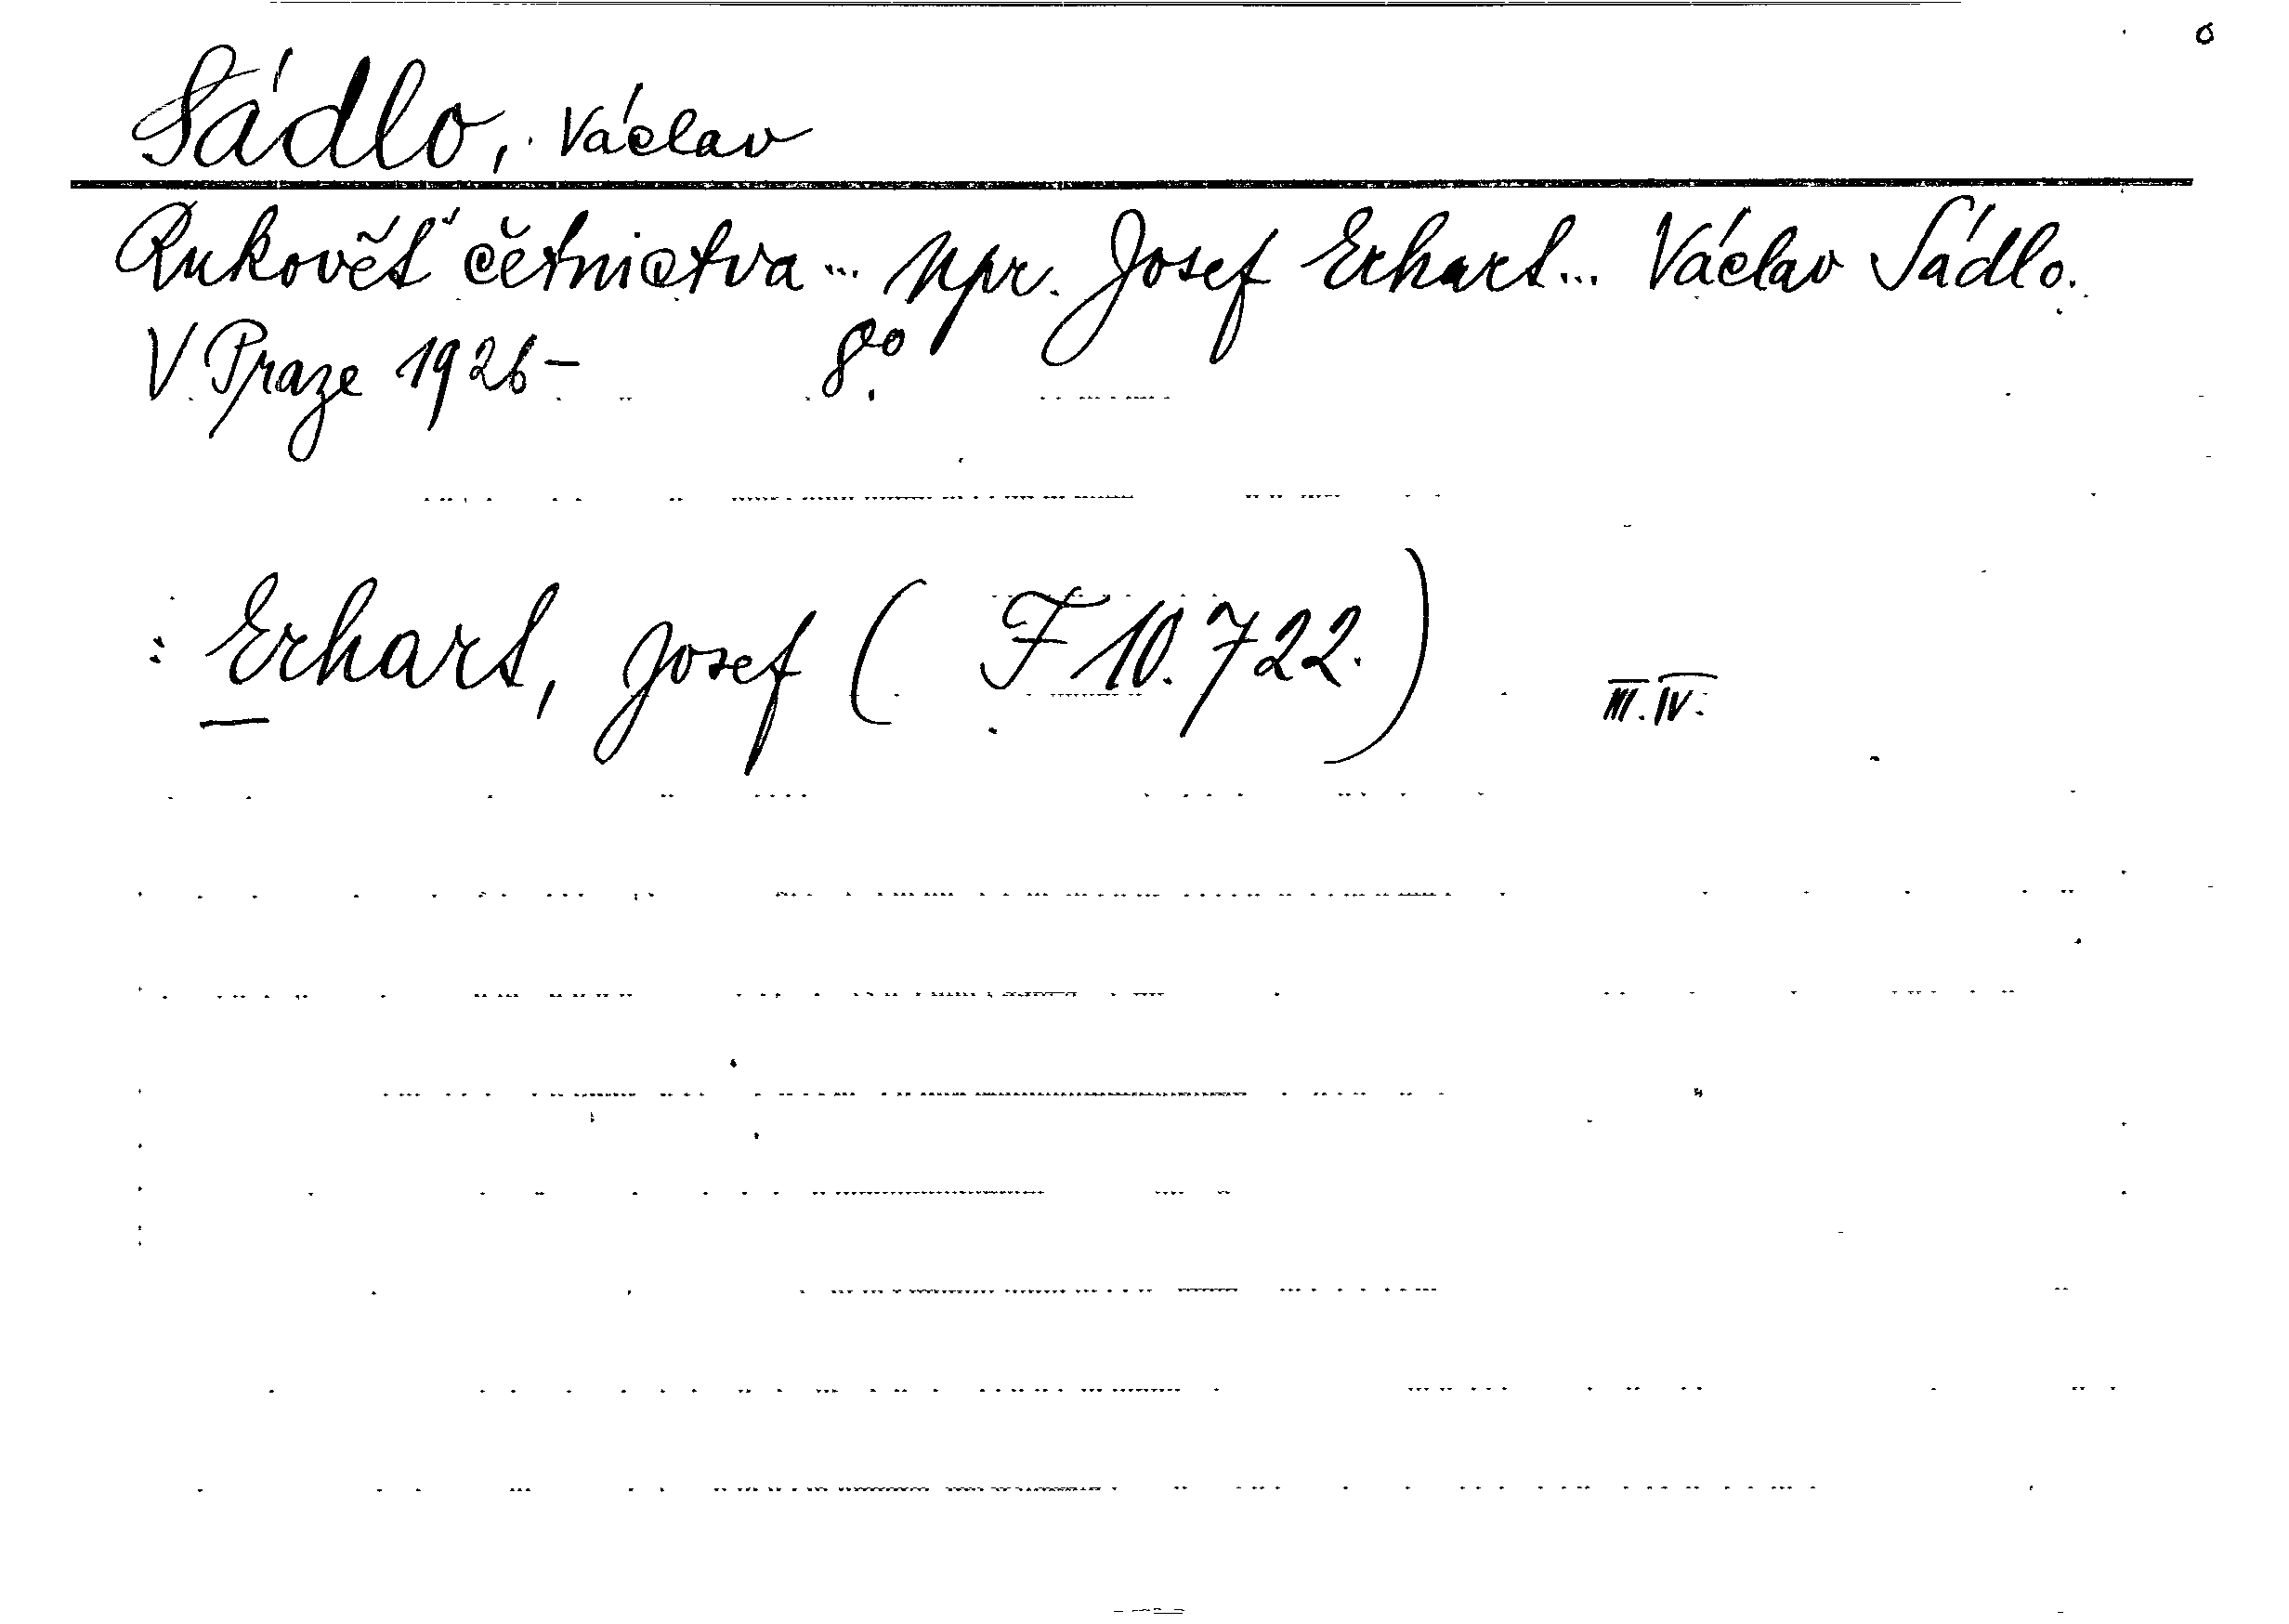 Sádlo, Václav
Rukověť četnictva... Npr. Josef Erhart... Václav Sádlo.
V Praze 1926- 8o.
: Erhart, Josef ( F 10.722. ) III. IV.